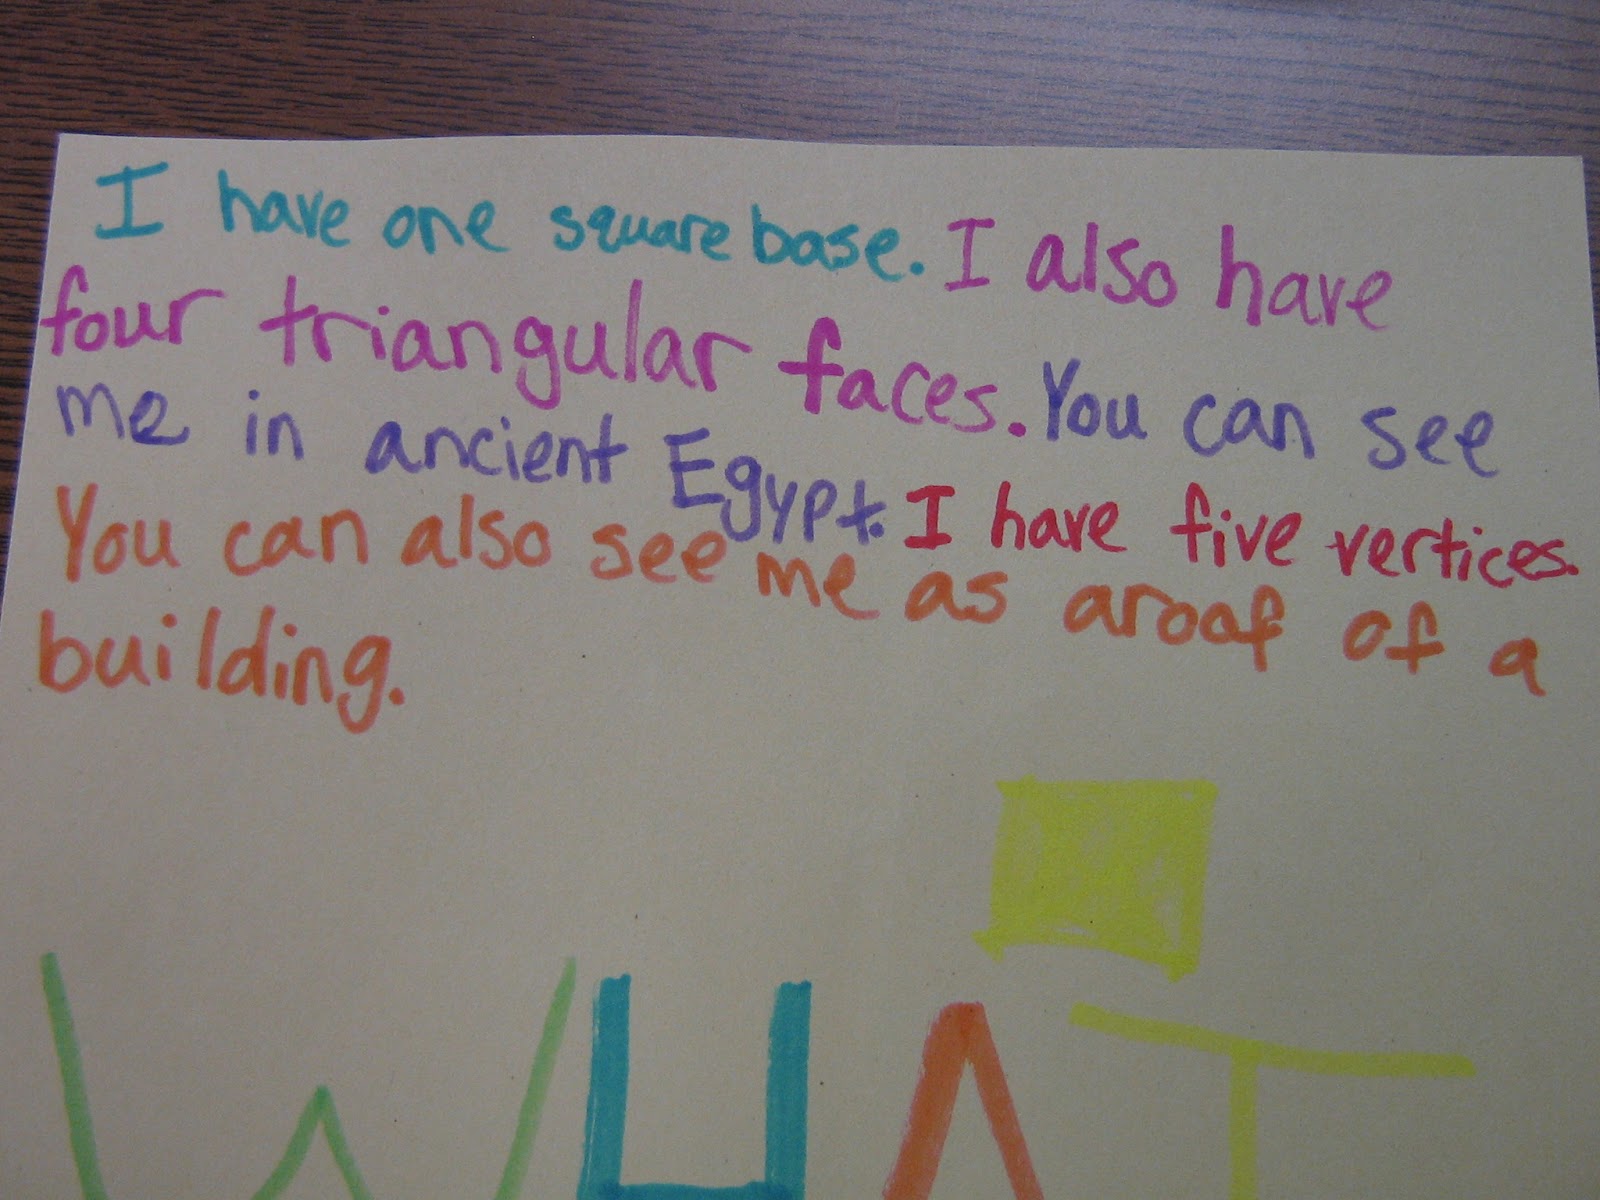 I have one square base. I also have
four triangular faces. You can see
me in ancient Egypt. I have five vertices.
You can also see me as aroof of a
building.
WHAT